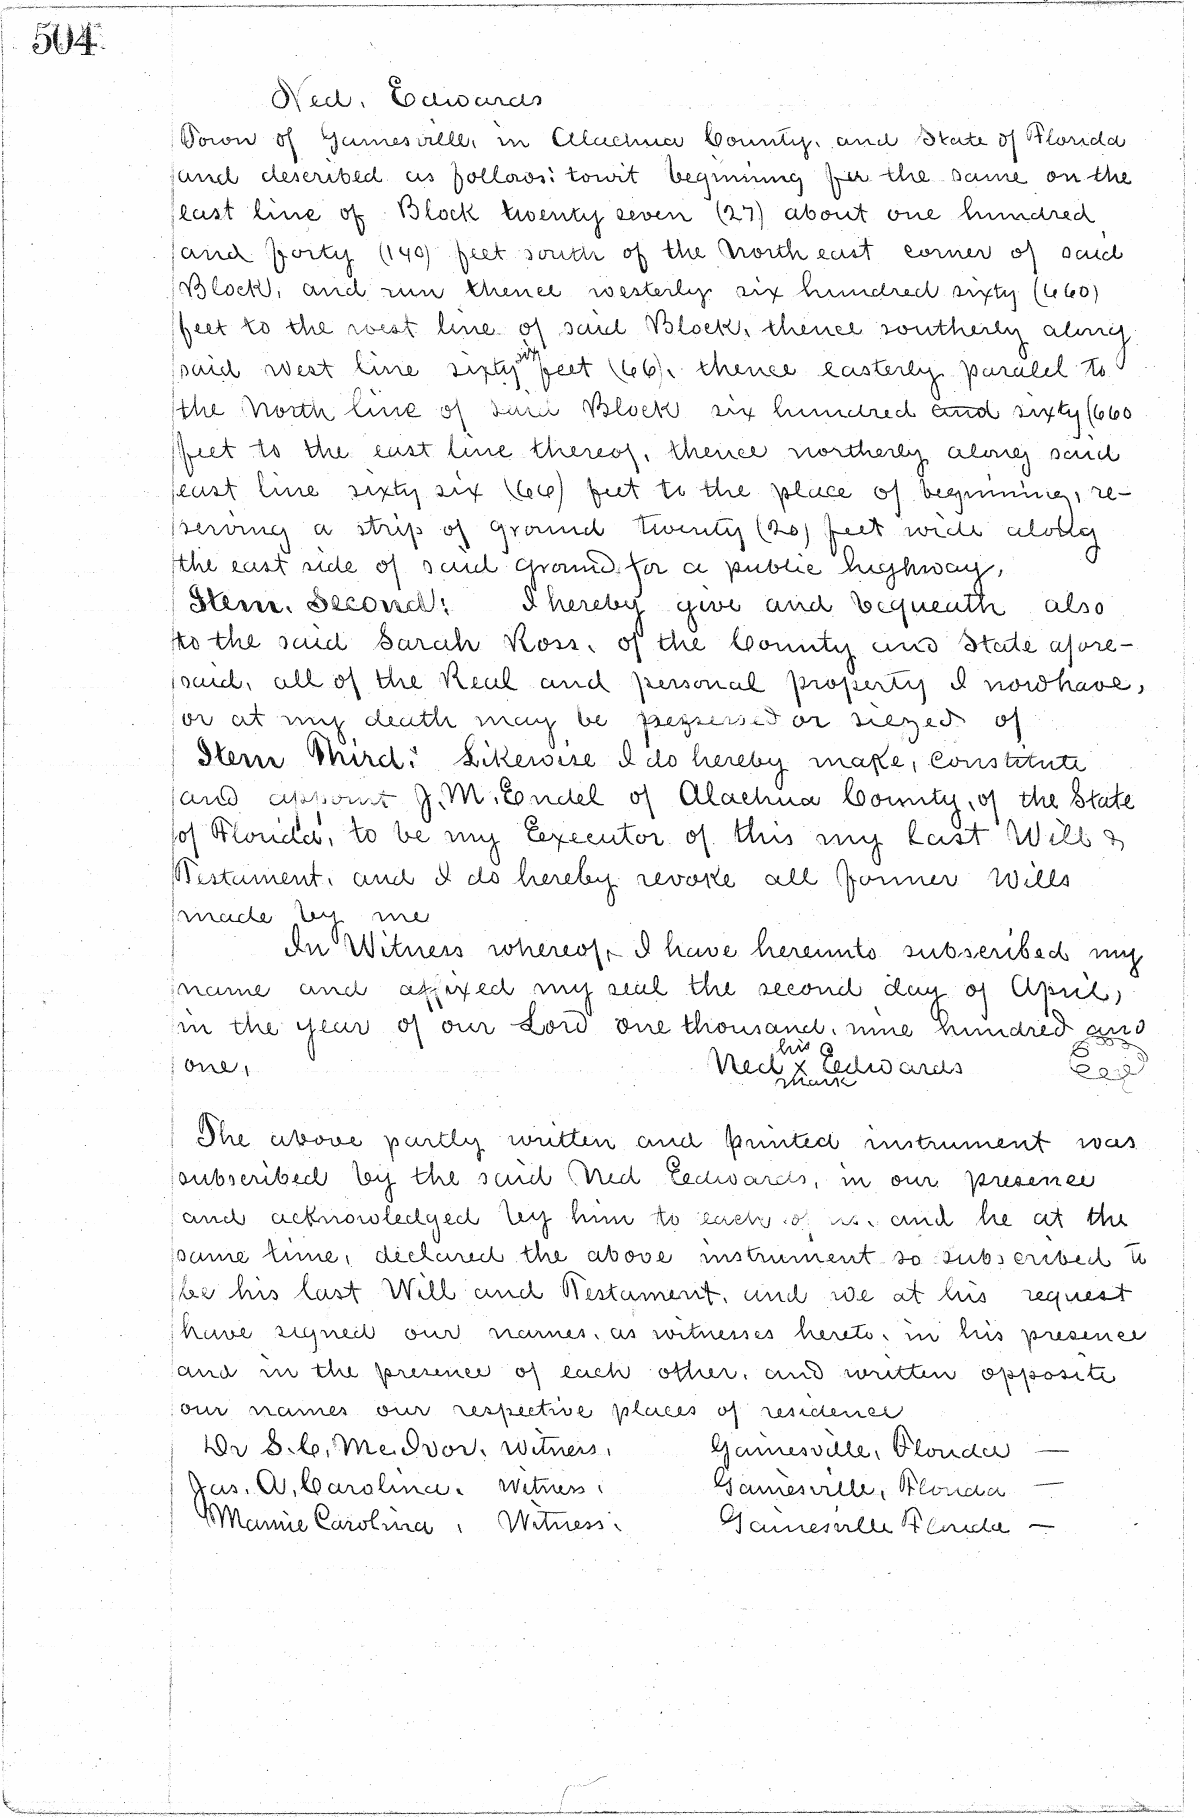 504.
Ned. Edwards
Town of Gainesville, in Alachua County, and State of Florida
and described as follows: towit beginning for the same on the
east line of Block twenty seven (27) about one hundred
and forty (140) feet south of the North east corner of said
Block, and run thence westerly six hundred sixty (660)
feet to the west line of said Block, thence southerly along
said west line sixty six feet (66), thence easterly paralel to
the North line of said Block six hundred and sixty (660
feet to the east line thereof, thence northerly along said
east line sixty six (66) feet to the place of beginning, re-
serving a strip of ground twenty (20) feet wide along
the east side of said ground for a public highway,
Item. Second: I hereby give and bequeath also
to the said Sarah Ross, of the County and State afore-
said, all of the Real and personal property I now have,
or at my death may be pezsessed or siezed of
Item Third: Likewise I do hereby make, constitute
and appoint J. M. Endel of Alachua County, of the State
of Florida, to be my Executor of this my Last Will &
Testament, and I do hereby revoke all former Wills
made by me
In Witness whereof, I have hereunto subscribed my
name and affixed my seal the second day of April,
in the year of our Lord one thousand, nine hundred and
one, Ned his x mark Edwards Seal
The above partly written and printed instrument was
subscribed by the said Ned Edwards, in our presence
and acknowledged by him to each of us, and he at the
same time, declared the above instrument so subscribed to
be his last Will and Testament, and we at his request
have signed our names, as witnesses hereto, in his presence
and in the presence of each other, and written opposite
our names our respective places of residence
Dr S. C. McIvor, Witness, Gainesville, Florida —
Jas. A. Carolina, Witness, Gainesville, Florida —
Mamie Carolina, Witness, Gainesville Florida —